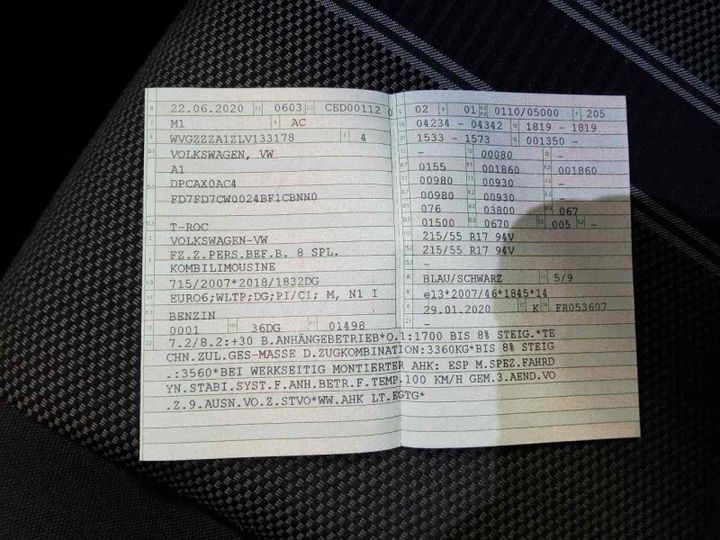 22.06.2020 0603 CED00112 0
M1 AC
WVGZZZA1ZLV133178 4
VOLKSWAGEN, VW
A1
DPCAX0AC4
FD7FD7CW0024BF1CBNN0
T-ROC
VOLKSWAGEN-VW
FZ.Z.PERS.BEF.B. 8 SPL.
KOMBILIMOUSINE
715/2007*2018/1832DG
EURO6;WLTP;DG;PI/CI; M, N1 I
BENZIN
0001 36DG 01498
02 01 0110/05000 205
04234 - 04342 1819 - 1819
1533 - 1573 001350 -
- 00080 -
0155 001860 001860
00980 00930 -
00980 00930 -
076 03800 067
01500 0670 005 -
215/55 R17 94V
215/55 R17 94V
-
BLAU/SCHWARZ 5/9
e13*2007/46*1845*14
29.01.2020 K FR053607
-
7.2/8.2:+30 B.ANHÄNGEBETRIEB*O.1:1700 BIS 8% STEIG.*TE
CHN.ZUL.GES-MASSE D.ZUGKOMBINATION:3360KG*BIS 8% STEIG
.:3560*BEI WERKSEITIG MONTIERTER AHK: ESP M.SPEZ.FAHRD
YN.STABI.SYST.F.ANH.BETR.F.TEMP.100 KM/H GEM.3.AEND.VO
.Z.9.AUSN.VO.Z.STVO*WW.AHK LT.EGTG*